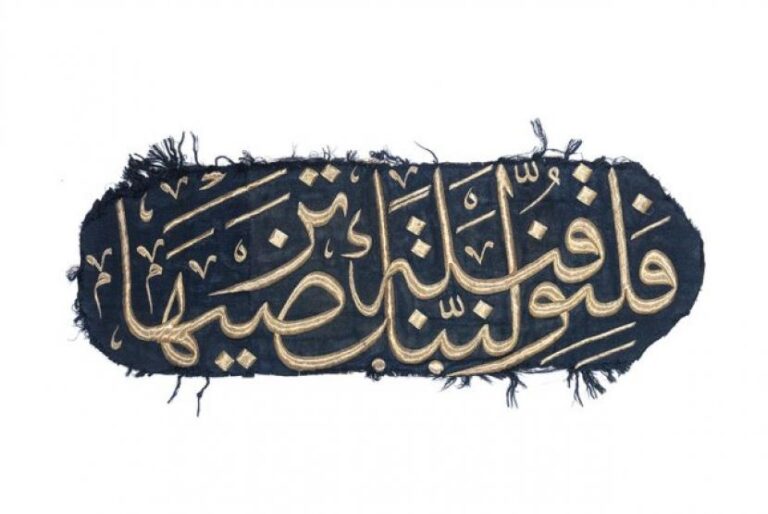 فلنولينك قبلة ترضيها